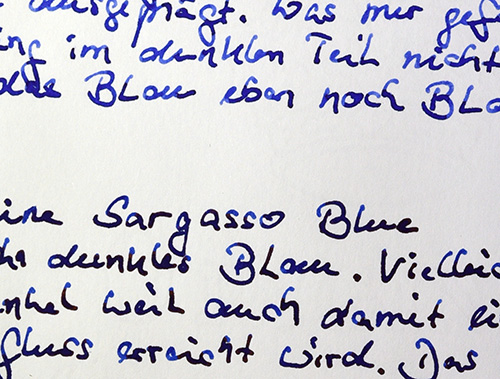 ausgeprägt. Was mir gef
ng im dunklen Teil nicht
das Blau eben noch Bla
ine Sargasso Blue
hr dunkles Blau. Vielleic
nkel weil auch damit ei
fluss erreicht wird. Das